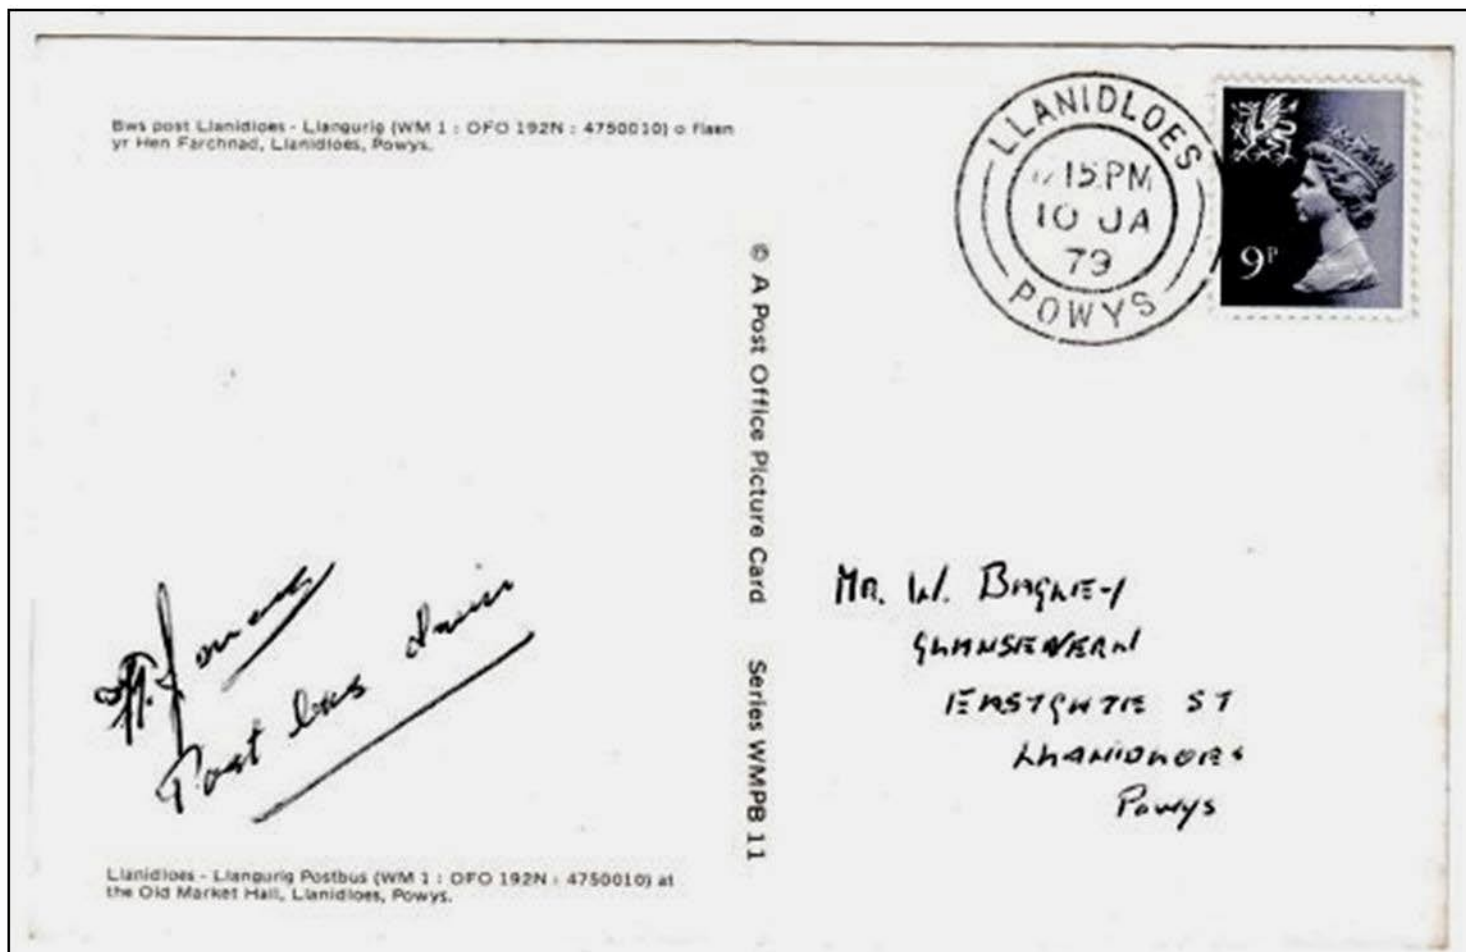 Bws post Llanidloes - Llangurig (WM 1 : OFO 192N : 4750010) o flaen
yr Hen Farchnad, Llanidloes, Powys.
LLANIDLOES
15 PM
10 JA
79
POWYS
9P
© A Post Office Picture Card Series WMPB 11
Post bus
Mr. W. Bagley
Glansevern
Eastgate St
Llanidloes
Powys
Llanidloes - Llangurig Postbus (WM 1 : OFO 192N : 4750010) at
the Old Market Hall, Llanidloes, Powys.